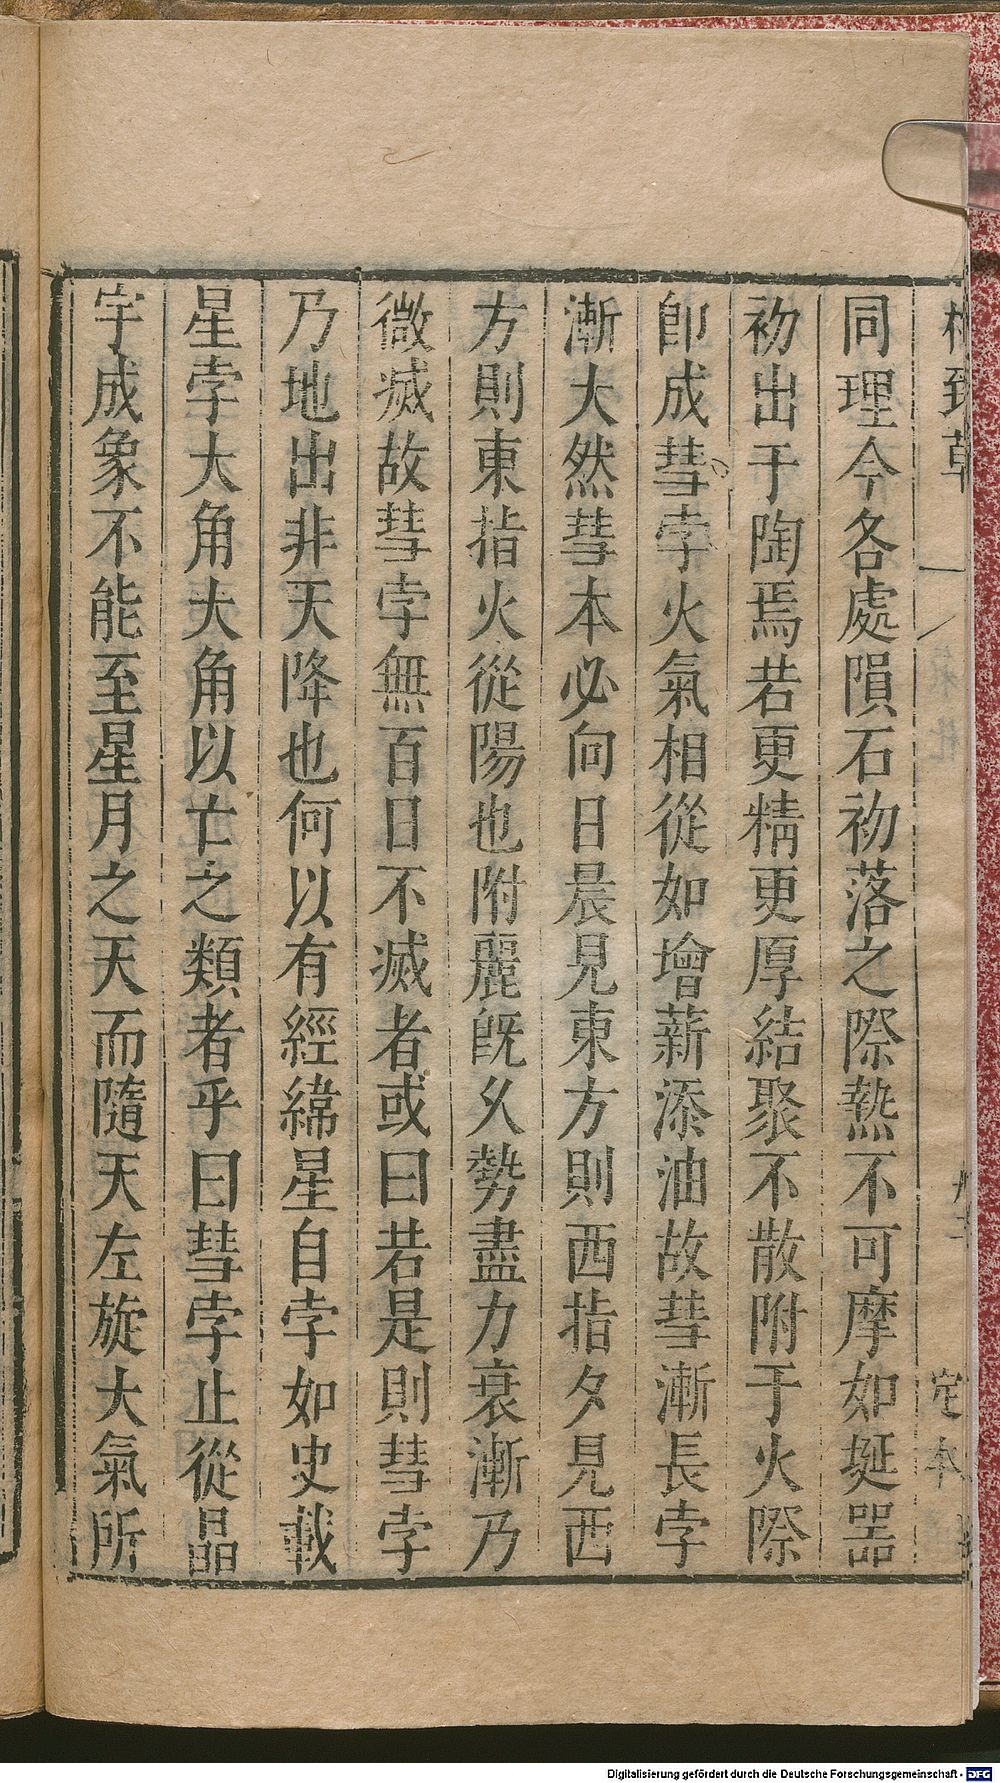 格致草
定本
同理今各處隕石初落之際熱不可摩如埏器
初出于陶焉若更精更厚結聚不散附于火際
卽成彗孛火氣相從如增薪添油故彗漸長孛
漸大然彗本必向日晨見東方則西指夕見西
方則東指火從陽也附麗旣久勢盡力衰漸乃
微滅故彗孛無百日不滅者或曰若是則彗孛
乃地出非天降也何以有經緯星自孛如史載
星孛大角大角以亡之類者乎曰彗孛止從晶
宇成象不能至星月之天而隨天左旋大氣所
Digitalisierung gefördert durch die Deutsche Forschungsgemeinschaft - DFG